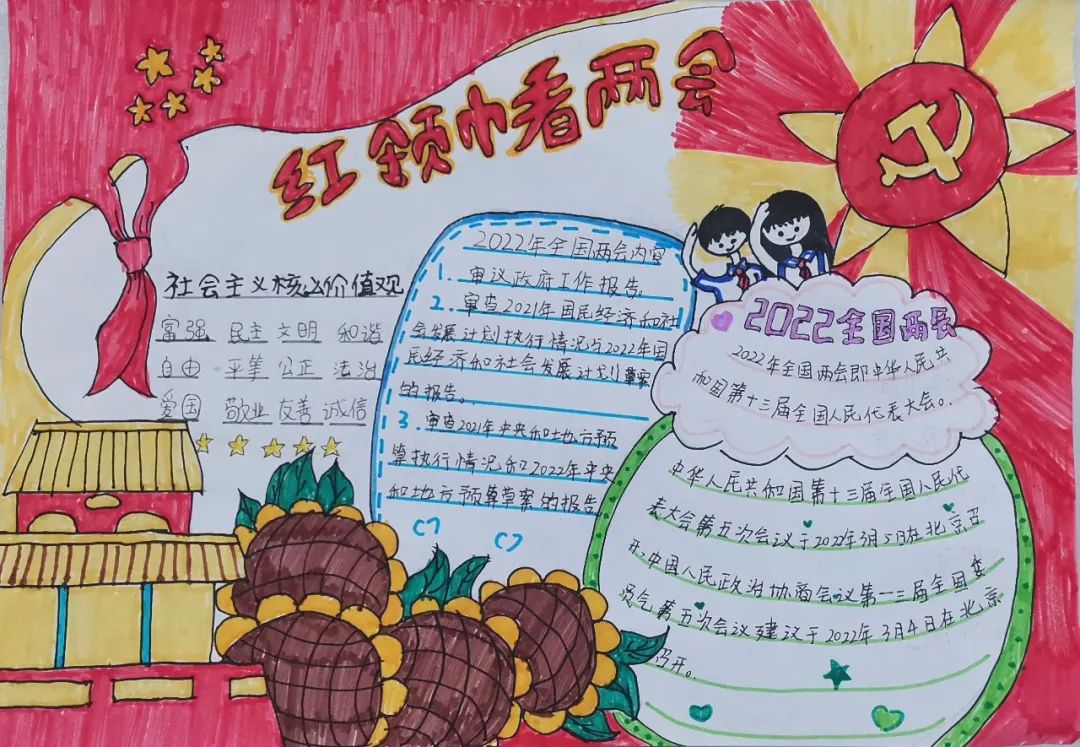 红领巾看两会
社会主义核心价值观
富强 民主 文明 和谐
自由 平等 公正 法治
爱国 敬业 友善 诚信
2022年全国两会内容
1. 审议政府工作报告
2. 审查2021年国民经济和社
会发展计划执行情况与2022年国
民经济和社会发展计划草案
的报告。
3. 审查2021年中央和地方预
算执行情况和2022年中央
和地方预算草案的报告
2022全国两会
2022年全国两会即中华人民共
和国第十三届全国人民代表大会。
中华人民共和国第十三届全国人民代
表大会第五次会议于2022年3月5日在北京召
开。中国人民政治协商会议第一三届全国委
员气第五次会议建议于2022年3月4日在北京
召开。